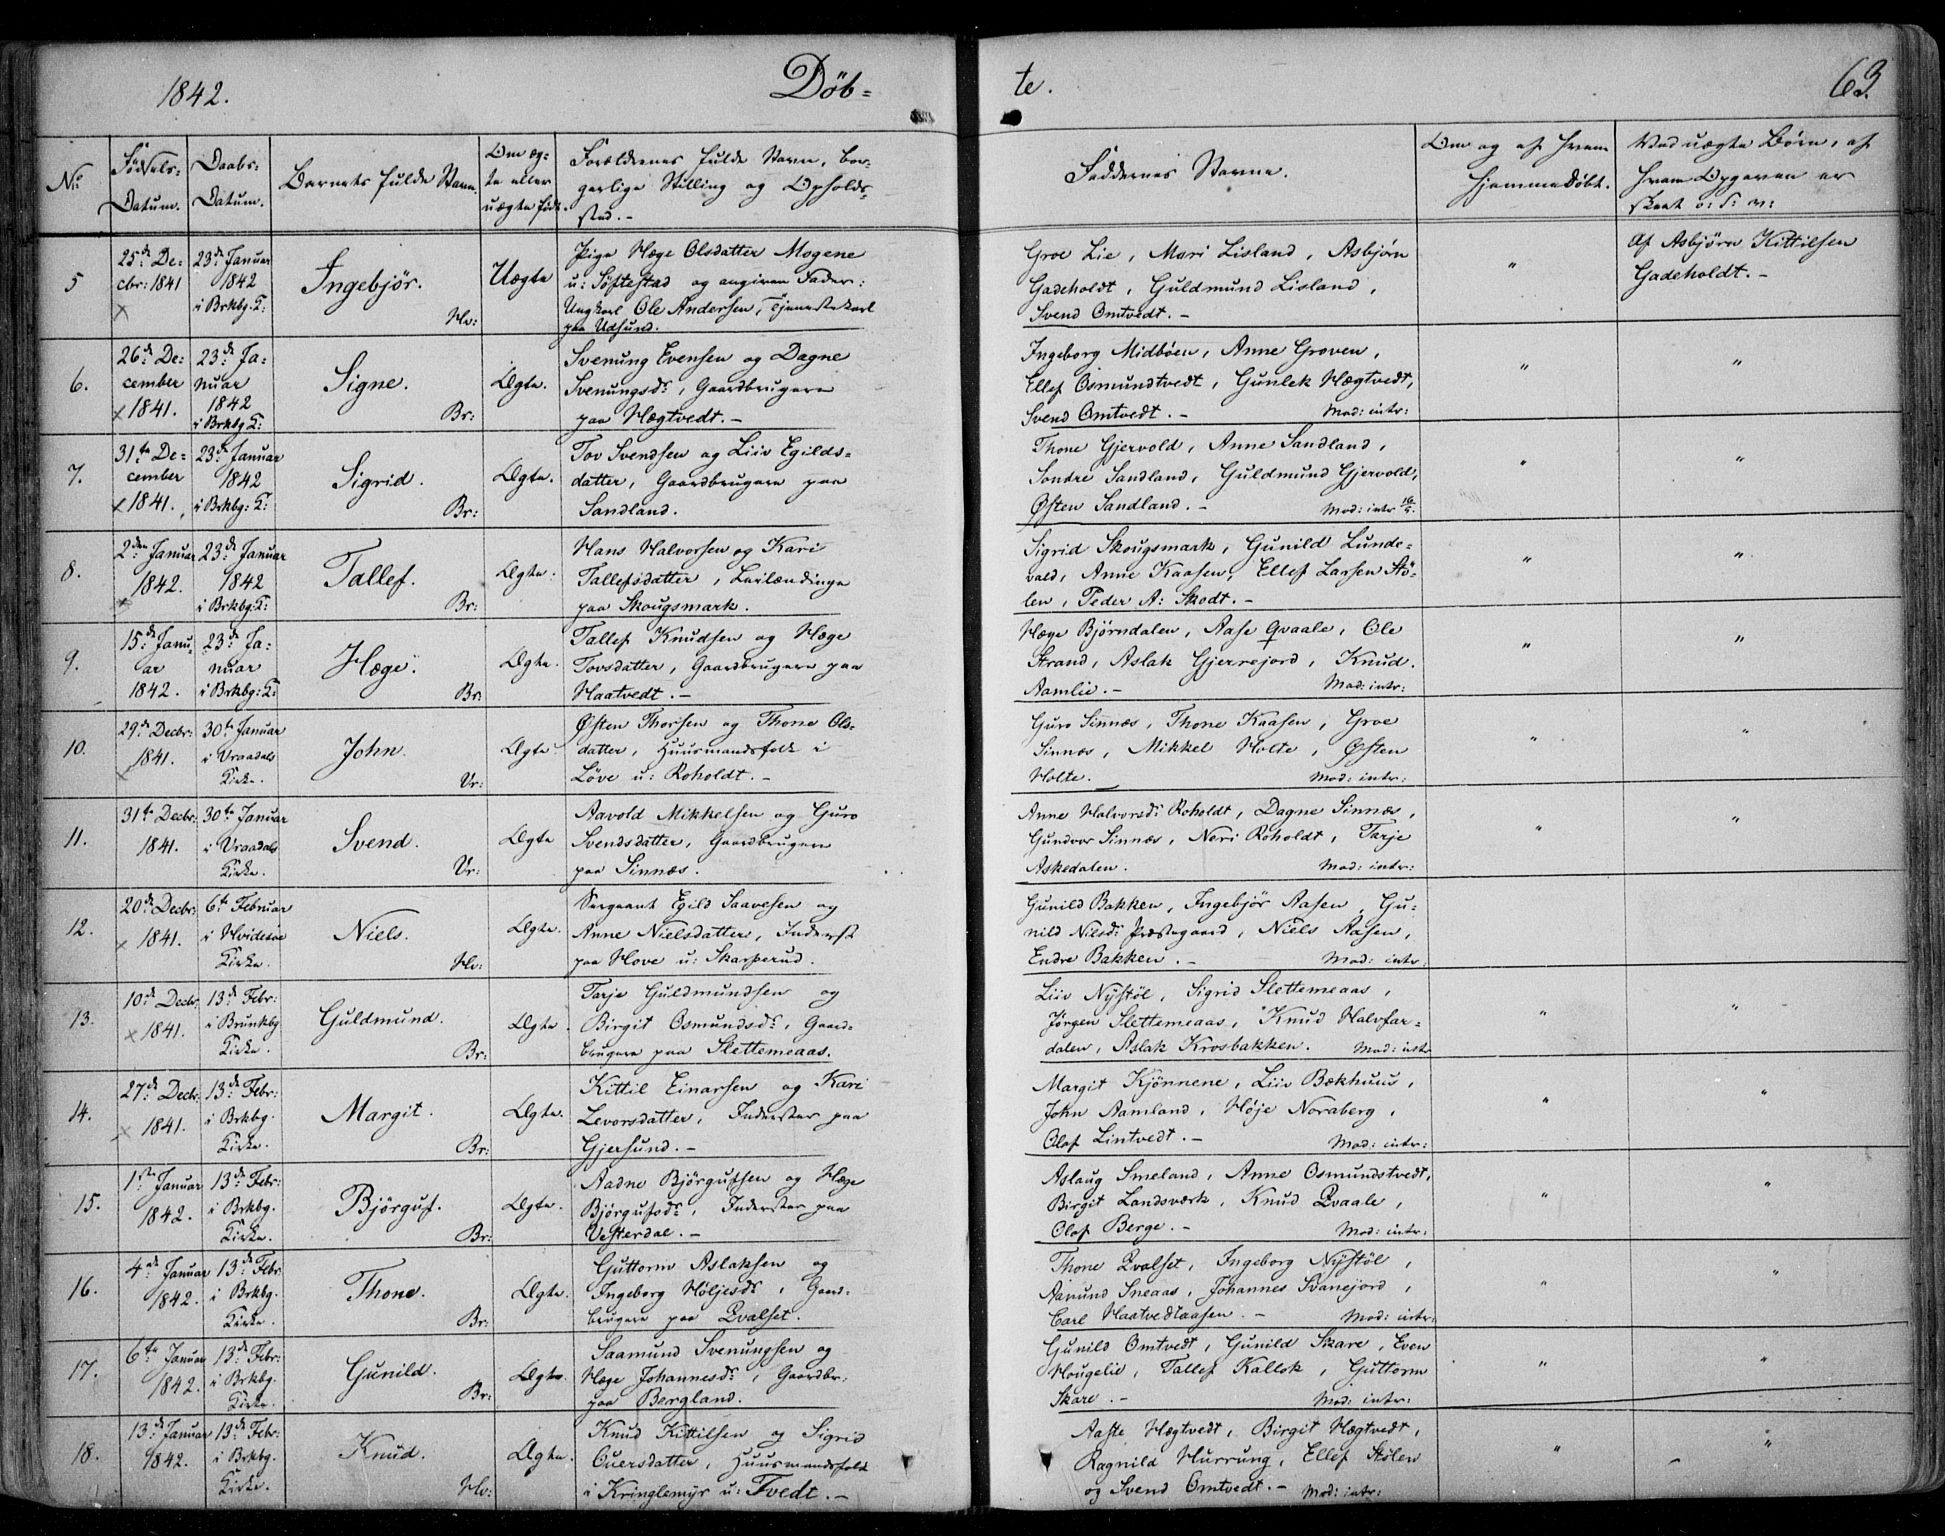 1842.
Döb-
te.
63.
No
Fødsels-
Datum.
Daabs-
Datum.
Barnets fulde Navn.
Om æg-
te eller
uægte født.
Forældrenes fulde Navn, bor-
gerlige Stilling og Opholds-
sted. -
Faddernes Navne.
Om og af hvem
hjemmedöbt.
Ved uægte Børn, af
hvem Opgaven er
skeet o: s: v:
5
25de De-
cbr: 1841
23de Januar
1842
i Brkbg: K:
Ingebjör.
Hv:
Uægte
Pige Hæge Olsdatter Mogene
u: Söftestad og angiven Fader:
Ungkarl Ole Andersen, Tjenestekarl
paa Udsund.
Groe Lie, Mari Lisland, Asbjörn
Gadeholdt, Guldmund Lisland,
Svend Omtvedt. -
"
Af Asbjörn Kittilsen
Gadeholdt. -
6.
26de De-
cember
1841.
23de Ja-
nuar
1842
i Brkbg K:
Signe.
Br:
Ægte.
Svenung Evensen og Dagne
Svenungsdr, Gaardbrugere
paa Hægtvedt. -
Ingeborg Midböen, Anne Groven,
Ellef Osmundtvedt, Gunlek Hægtvedt,
Svend Omtvedt. - Mod: intr:
"
"
7.
31te De-
cember
1841.
23de Januar
1842
i Brkbg: K:
Sigrid.
Br:
Ægte.
Tov Svendsen og Liiv Egilds-
datter, Gaardbrugere paa
Sandland.
Thone Gjervold, Anne Sandland,
Sondre Sandland, Guldmund Gjervold,
Østen Sandland. - Mod: intr
"
"
8.
2den Januar
1842.
23de Januar
1842
i Brkbg: K:
Tallef.
Br:
Ægte.
Hans Halvorsen og Kari
Tallefsdatter, Leilændinge
paa Skougsmark.
Sigrid Skougsmark, Gunild Lunde-
vald, Anne Kaasen, Ellef Larsen Stö-
len, Peder A: Skodt. -
"
"
9.
15de Janu-
ar
1842.
23de Ja-
nuar
i Brkbg: K:
Hæge.
Br:
Ægte.
Tallef Knudsen og Hæge
Tovsdatter, Gaardbrugere paa
Haatvedt. -
Hæge Björndalen, Aase Qvaale, Ole
Strand, Aslak Gjerrejord, Knud
Aamlie. - Mod: intr:
"
"
10.
29de Decbr:
1841.
30te Januar
i Vraadals
Kirke.
John.
Vr:
Ægte.
Østen Thorsen og Thone Ols-
datter, Huusmandsfolk i
Löve u: Roholdt. -
Guro Sinnæs, Thone Kaasen, Groe
Sinnæs, Mikkel Holte, Østen
Holte. Mod: intr:
"
"
11.
31te Decbr:
1841.
30te Januar
i Vraadals
Kirke.
Svend.
Vr:
Ægte
Aavold Mikkelsen og Guro
Svendsdatter, Gaardbrugere
paa Sinnæs.
Anne Halvorsdr Roholdt, Dagne Sinnæs,
Gundvor Sinnæs, Nori Roholdt, Tarje
Askedalen. Mod: intr:
"
"
12.
20de Decbr:
1841.
6te Februar
i Hvidesöe
Kirke.
Niels.
Hv:
Ægte.
Sergeant Egild Saavesen og
Anne Nielsdatter, Inderst
paa Hove u: Skarperud.
Gunild Bakken, Ingebjör Aasen, Gu-
nild Nilsdr Præstegaard, Niels Aasen,
Endre Bakken. - Mod: intr:
13.
10de Decbr:
1841.
13de Febr:
i Brunkbg
Kirke.
Guldmund.
Br:
Ægte.
Tarje Guldmundsen og
Birgit Osmundsdr, Gaard-
brugere paa Slettemeaas.
Liiv Nystöl, Sigrid Slettemeaas,
Jörgen Slettemeaas, Knud Halvfar-
dalen, Aslak Krosbakken. Mod: intr
"
"
14.
27de Decbr:
1841.
13de Febr:
i Brkbg.
Kirke.
Margit.
Br:
Ægte.
Kittil Einarsen og Kari
Levorsdatter, Inderster paa
Gjersund. -
Margit Kjönnene, Liiv Bækhuus,
John Aamland, Höje Noraberg,
Olaf Lintvedt. - Mod: intr:
"
"
15.
1ste Januar
1842.
13de Febr:
i Brkbg.
Kirke.
Björguf.
Br:
Ægte.
Aadne Björgufsen og Hæge
Björgufsdr, Inderster paa
Vesterdal. -
Aslaug Smeland, Anne Osmundstvedt,
Birgit Landsværk, Knud Qvaale,
Olaf Berge. - Mod: intr:
"
"
16.
4de Januar
1842.
13de Febr.
i Brkbg.
Kirke.
Thone.
Br:
Ægte.
Guttorm Aslaksen og
Ingeborg Höljesdr, Gaard-
brugere paa Qvalset.
Thone Qvalset, Ingeborg Nystöl,
Aanund Sneaas, Johannes Svanejord,
Carl Haatvedtaasen. - Mod: intr:
"
"
17.
6te Januar
1842.
13de Febr:
i Brkbg.
Kirke.
Gunild.
Br:
Ægte.
Saamund Svenungsen og
Hæge Johannesdr, Gaardbr:
paa Bergland.
Gunild Omtvedt, Gunild Skare, Even
Hougelie, Tallef Kallok, Guttorm
Skare. - Mod: intr:
"
"
18.
13de Januar
1842.
13de Febr:
i Brkbg.
Kirke.
Knud.
Hv:
Ægte.
Knud Kittilsen og Sigrid
Ouersdatter, Huusmandsfolk
i Kringlemyr u: Tvedt. -
Aaste Hægtvedt, Birgit Hægtvedt,
Ragnild Hurrung, Ellef Stölen
og Svend Omtvedt. - Mod: intr:
"
"